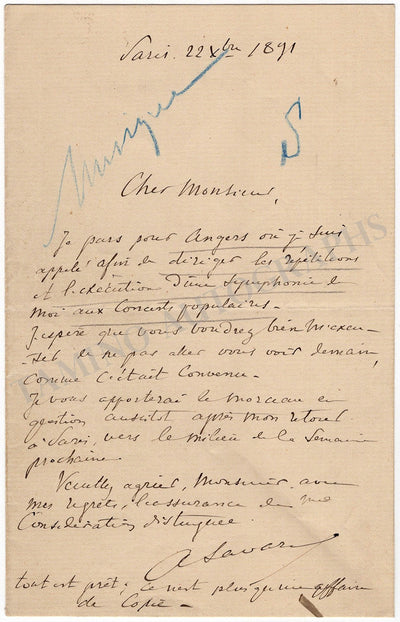 Paris. 22 Xbre 1891
Musique
S
Cher Monsieur,
Je pars pour Angers où je suis
appelé afin de diriger les répétitions
et l'exécution d'une symphonie de
moi aux Concerts populaires.
J'espère que vous voudrez bien m'excu-
ser de ne pas aller vous voir demain,
comme c'était convenu.
Je vous apporterai le morceau en
question aussitôt après mon retour
à Paris, vers le milieu de la semaine
prochaine.
Veuillez agréer, Monsieur, avec
mes regrets, l'assurance de ma
Considération distinguée.
A Savard
tout est prêt; ce n'est plus qu'une affaire
de Copie -
TAMINO AUTOGRAPHS